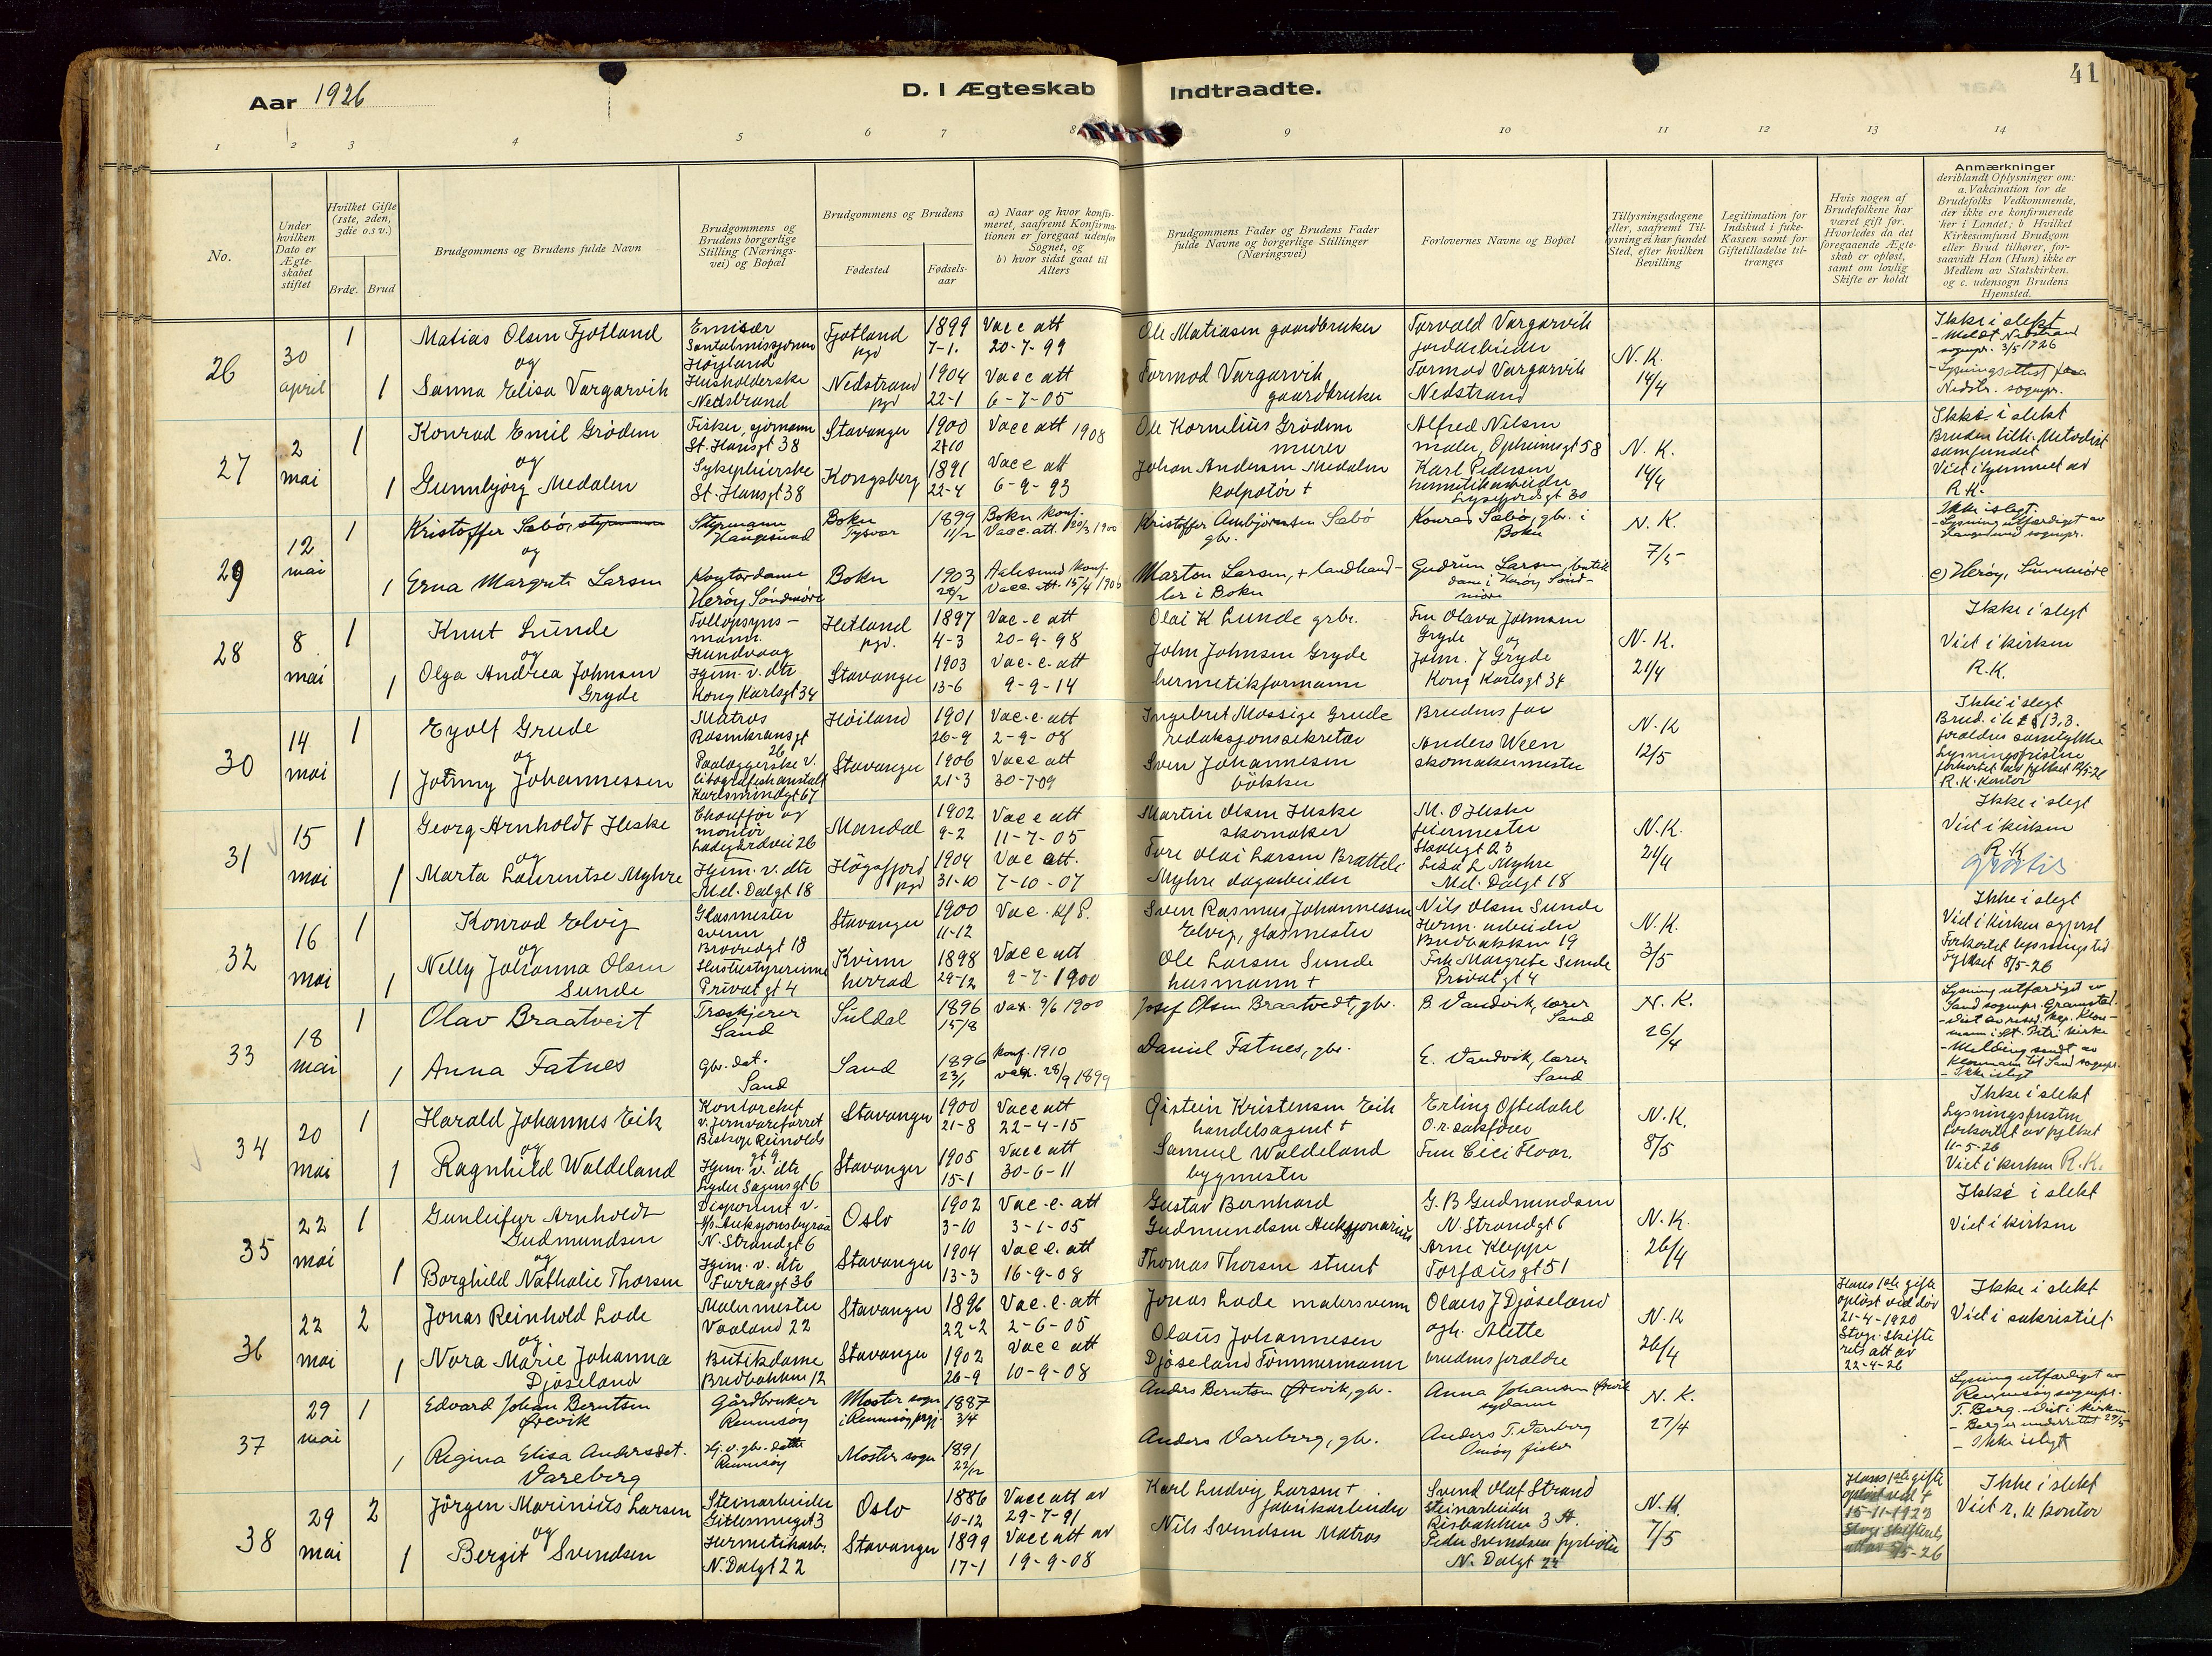 41
Aar 1926
D. I Ægteskab Indtraadte.
1 2 3 4 5 6 7 8 9 10 11 12 13 14
No.
Under hvilken Dato er Ægteskabet stiftet
Hvilket Gifte (1ste, 2den, 3die o.s v.)
Brdg. Brud
Brudgommens og Brudens fulde Navn
Brudgommens og Brudens borgerlige Stilling (Næringsvei) og Bopæl
Brudgommens og Brudens
Fødested
Fødselsaar
a) Naar og hvor konfirmeret, saafremt Konfirmationen er foregaat udenfor Sognet, og
b) hvor sidst gaat til Alters
Brudgommens Fader og Brudens Fader fulde Navne og borgerlige Stillinger (Næringsvei)
Forlovernes Navne og Bopæl
Tillysningsdagene eller, saafremt Tillysning ei har fundet Sted, efter hvilken Bevilling
Legitimation for Indskud i fuke-Kassen samt for Giftetilladelse tiltrænges
Hvis nogen af Brudefolkene har været gift før. Hvorledes da det foregaaende Ægteskab er opløst, samt om lovlig Skifte er holdt
Anmærkninger
deriblandt Oplysninger om: a. Vakcination for de Brudefolks Vedkommende, der ikke ere konfirmerede her i Landet; b Hvilket Kirkesamfund Brudgom eller Brud tilhører, forsaavidt Han (Hun) ikke er Medlem av Statskirken. og c. udensogn Brudens Hjemsted.
26
30 april
1
Matias Olsen Fjotland
og
1
Sanna Elisa Vargarvik
Emisær
Santalmissjonen
Høyland
Husholderske
Nedstrand
Fjotland pgd
Nedstrand pgd
1899
7-1.
1904
22-1
Vacc att
20-7-99
Vacc att
6-7-05
Ole Matiasen gaardbruker
Tormod Vargarvik
gaardbruker
Torvald Vargarvik
jordarbeider
Tormod Vargarvik
Nedstrand
N.K.
14/4
Ikke i slekt
- Meldt Nedstrand
sognepr. 3/5 1926
- Lysningsattest fra
Nedstr. sognepr.
27
2 mai
1
Konrad Emil Grödem
og
1
Gunnbjörg Medalen
Fisker, sjømann
St. Hansgt 38
Sykepleierske
St. Hansgt 38
Stavanger
Kongsberg
1900
1891
22-4
Vacc att 1908
Vacc att
6-9-93
Ole Kornelius Grödem
murer
Johan Andersen Medalen
kolpotör +
Alfred Nilsen
maler, Opheimsgt 58
Karl Pedersen
hermetikarbeider
Lysefjordsgt 30
N.K.
14/4
Ikke i slekt
Bruden tilh. Metodist
samfundet
Viet i hjemmet av
R.K.
29
12 mai
1
Kristoffer Sæbö, styrmann
og
1
Erna Margrete Larsen
Styrmann
Haugesund
Kontordame
Heröy Söndmöre
Bokn
Tysvær
Bokn
1899
11/2
1903
Bokn konf.
Vacc. att. 20/3 1900
Aalesund konf.
Vacc. att. 15/4 1906
Kristoffer Asbjörnsen Sæbö
gbr.
Marton Larsen, + landhandler i Bokn
Konrad Sæbö, gbr. i
Bokn
Gudrun Larsen, butikdame i Heröy Söndmöre
N.K.
7/5
Ikke i slegt.
- Lysning utfærdiget av
Haugesund sognepr.
c) Heröy, Sunnmöre
28
8 mai
1
Knut Lunde
og
1
Olga Andrea Johnsen
Gryde
Tollopsynsmann.
Hundvaag
Hjem. v. dtr
Kong Karlsgt 34
Hetland pgd.
Stavanger
1897
4-3
1903
13-6
Vac-c att
20-9-98
Vac.c. att
9-9-14
Olai K Lunde grbr.
John Johnsen Gryde
hermetikformann
Fru Olava Johnsen
Gryde og
John. J Gryde
Kong Karlsgt 34
N.K.
21/4
Ikke i slegt
Viet i kirken
R.K.
30
14 mai
1
Eyolf Grude
og
1
Jenny Johannessen
Matros
Rosenkransgt
26
Paalæggerske v.
litografiskanstalt
Karlsmindegt 67
Höiland
Stavanger
1901
26-9
1906
21-3
Vac.c. att
2-9-08
Vacc att
30-7-09
Ingebret Mossige Grude
redaksjonssekretær
Sven Johannesen
bökker
Brudens far
Anders Ween
skomakermester
N.K
12/5
Ikke i slegt
foreldres samtykke
Lysningsfristen
forkortet av fylket 12/5-26
R.K. kontor
31
15 mai
1
Georg Arnholdt Heske
og
1
Marta Laurentse Myhre
Chauffør og
montør
Ladegårdvei 26
Hjem. v. dtr
Mel. Dalgt 18
Mandal
Högsfjord pgd
1902
9-2
1904
31-10
Vacc att
11-7-05
Vac att.
7-10-07
Martin Olsen Heske
skomaker
Tore Olai Larsen Bratteli
Myhre dagarbeider
M. O Heske
feiermester
Lisa L Myhre
Mel. Dalgt 18
N.K.
21/4
Ikke i slegt
Viet i kirken
R.K
gratis
32
16 mai
1
Konrad Elvig
og
1
Nelly Johanna Olsen
Sunde
Glasmester
svenn
Brovedgt 18
Husbestyrerinne
Privat gt 4
Stavanger
Kvinn
herred
1900
11-12
1898
29-12
Vac. kf S.
Vacc att
9-7-1900
Sven Rasmus Johannessen
Elvig, glasmester
Ole Larsen Sunde
husmann +
Nils Olsen Sunde
Herm. arbeider
Budbakken 19
Frk Margrete Sunde
Privat gt 4
N.K.
3/5
Ikke i slegt
Forkortet lysningstid
Fylket 8/5-26
33
18 mai
1
Olav Braatveit
1
Anna Fatnes
Træskjærer
Sand
gbr. dat.
Sand
Suldal
Sand
1896
15/8
1896
23/1
vax. 9/6 1900
konf. 1910
vax. 28/9 1899
Josef Olsen Braatvedt, gbr.
Daniel Fatnes, gbr.
B Vandvik, lærer
Sand
E. Vandvik, lærer
Sand
N.K.
26/4
Lysning utfærdiget av
Sand sognepr. Gramstad.
- Viet av resid. kap. Klosmann i St. Petri kirke
- Melding sendt av
Klosmann til Sand sognepr.
- Ikke i slegt
34
20 mai
1
Harald Johannes Eik
og
1
Ragnhild Waldeland
Kontorchef
v. jernvareforret
Biskop Reinolds
gt 9
Hjem. v. dtr
Lyder Sagensgt 6
Stavanger
Stavanger
1900
21-8
1905
15-1
Vacc att
22-4-15
Vacc att
30-6-11
Øistein Kristensen Eik
handelsagent +
Samuel Waldeland
bygmester
Erling Oftedahl
o.r. sakförer
Frue Cici Floor.
N.K.
8/5
Ikke i slekt
Lysningsfristen
forkortet av fylket
11-5-26
Viet i kirken R.K.
35
22 mai
1
Gunleifur Arnholdt
Gudmundsen
og
1
Borghild Nathalie Thorsen
Disponent v.
A/s Auksjonsbyraa
N. Strandgt 6
Hjem. v. dtr
Furrasgt 36
Oslo
Stavanger
1902
3-10
1904
13-3
Vac.c. att
3-1-05
Vacc. att
16-9-08
Gustav Bernhard
Gudmundsen Auksjonarius
Thomas Thorsen stuert
G.B Gudmundsen
N. Strandgt 6
Arne Kleppe
Torfæusgt 51
N.K.
26/4
Ikke i slekt
Viet i kirken
36
22 mai
2
Jonas Reinhold Lode
og
1
Nora Marie Johanna
Djöseland
Malermester
Vaaland 22
Butikdame
Budbakken 12
Stavanger
Stavanger
1896
22-2
1902
26-9
Vac.c. att
2-6-05
Vacc att
10-9-08
Jonas Lode malersvenn
Olaus Johannesen
Djöseland Tömmermann
Olaus J Djöseland
og h. Alette
brudens forældre
N.K
26/4
Hans 1ste gifte
oplöst ved död
21-4-1920
Stvgr. Skifterets att av
22-4-26
Ikke i slekt
Viet i sakristiet
37
29 mai
1
Edvard Johan Berntsen
Örevik
1
Regina Elisa Andersdat.
Vareberg
Gårdbruker
Rennesöy
Hj. v. gbr. datter
Rennesöy
Moster sogn
i Rennesöy prgj.
Moster sogn
1887
3/4
1891
22/12
Anders Berntsen Örevik, gbr.
Anders Vareberg, gbr.
Anna Johansen Örevik
sydame
Anders T. Vareberg
Omöy fisker
N.K.
27/4
Lysning utfærdiget av
Rennesöy sognepr.
T. Berg. - Viet i kirken.
- Berg er underrettet 29/5
- Ikke i slegt
38
29 mai
2
Jörgen Marinius Larsen
og
1
Bergit Svendsen
Steinarbeider
Gitlesmuget 3
Hermetikarb.
N. Dalgt 22
Oslo
Stavanger
1886
10-12
1899
17-1
Vacc att av
29-7-91
Vacc att av
19-9-08
Karl Ludvig Larsen +
fabrikarbeider
Nils Svendsen Matros
Svend Olaf Strand
steinarbeider
Risbakken 3 A.
Peder Svendsen fyrböter
N. Dalgt 22
N.K.
7/5
Hans 1ste gifte
oplöst ved +
15-11-1923
Stvgr. Skifterets
att av 5/5-26
Ikke i slekt
Viet r. k kontor